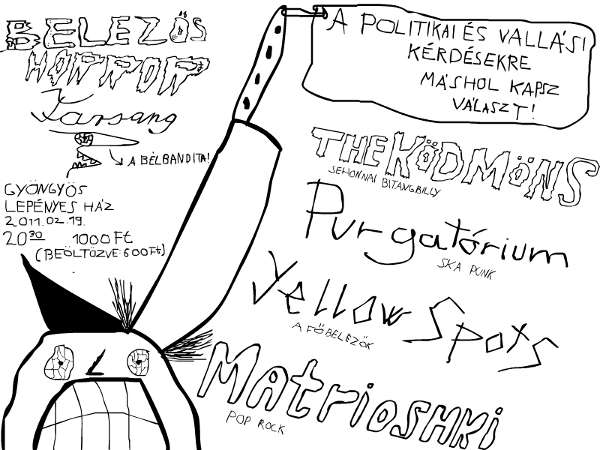 BELEZŐS
HORROR
Farsang
A BÉLBANDITA!
GYÖNGYÖS
LEPÉNYES HÁZ
2011.02.19.
20³⁰ 1000 Ft
(BEÖLTÖZVE: 600 Ft)
A POLITIKAI ÉS VALLÁSI
KÉRDÉSEKRE
MÁSHOL KAPSZ
VÁLASZT!
THE KÖDMÖNS
SEHONNAI BITANGBILLY
Purgatórium
SKA PUNK
Yellow Spots
A FŐBELEZŐK
MatrioSHKi
POP ROCK